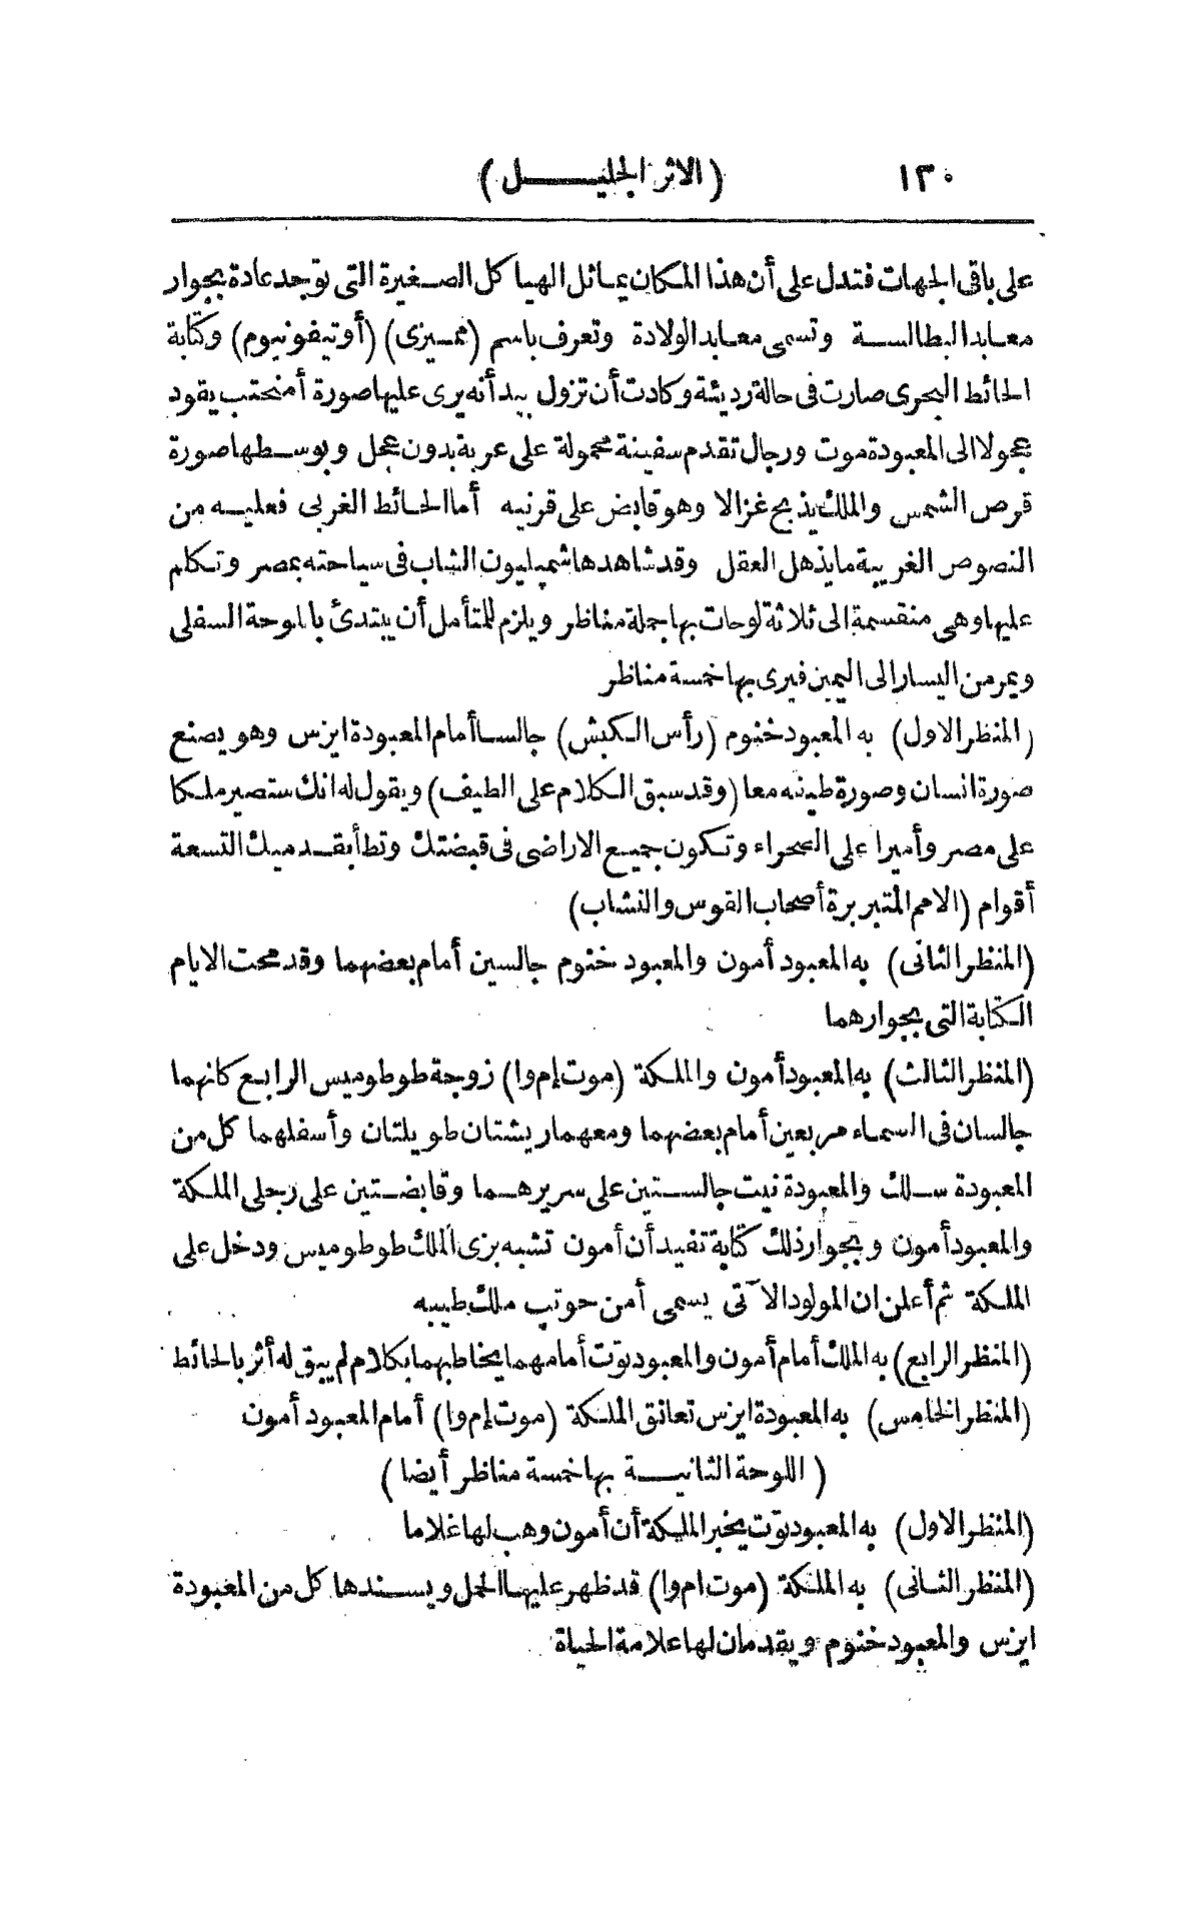 ١٣٠ (الاثر الجليل)
على باقى الجهات فتدل على أن هذا المكان يماثل الهياكل الصغيرة التى توجد عادة بجوار
معابد البطالسة وتسمى معابد الولادة وتعرف باسم (مميزى) (أوتيفونيوم) وكتابة
الحائط البحرى صارت فى حالة رديئة وكادت أن تزول بيد أنه يرى عليها صورة أمنحتب يقود
عجولا الى المعبودة موت ورجال تقدم سفينة محمولة على عربة بدون عجل وبوسطها صورة
قرص الشمس والملك يذبح غزالا وهو قابض على قرنيه أما الحائط الغربى فعليه من
النصوص الغريبة ما يذهل العقل وقد شاهدها شمبليون الشاب فى سياحته بمصر وتكلم
عليها وهى منقسمة الى ثلاثة لوحات بها جملة مناظر ويلزم للمتأمل أن يبتدئ باللوحة السفلى
ويمر من اليسار الى اليمين فيرى بها خمسة مناظر
(المنظر الاول) به المعبود خنوم (رأس الكبش) جالسا أمام المعبودة ايزس وهو يصنع
صورة انسان وصورة طينه معا (وقد سبق الكلام على الطيف) ويقول له انك ستصير ملكا
على مصر وأميرا على الصحراء وتكون جميع الاراضى فى قبضتك وتطأ بقدميك التسعة
أقوام (الامم المتبربرة أصحاب القوس والنشاب)
(المنظر الثانى) به المعبود أمون والمعبود خنوم جالسين أمام بعضهما وقد محت الايام
الكتابة التى بجوارهما
(المنظر الثالث) به المعبود أمون والملكة (موت إم وا) زوجة طوطوميس الرابع كانهما
جالسان فى السماء مربعين أمام بعضهما ومعهما ريشتان طويلتان وأسفلهما كل من
المعبودة سلك والمعبودة نيت جالستين على سريرهما وقابضتين على رجلى الملكة
والمعبود أمون وبجوار ذلك كتابة تفيد أن أمون تشبه بزى الملك طوطوميس ودخل على
الملكة ثم أعلن ان المولود الآتى يسمى أمن حوتب ملك طيبه
(المنظر الرابع) به الملك أمام أمون والمعبود توت أمامهما يخاطبهما بكلام لم يبق له أثر بالحائط
(المنظر الخامس) به المعبودة ايزس تعانق الملكة (موت إم وا) أمام المعبود أمون
(اللوحة الثانية بها خمسة مناظر أيضا)
(المنظر الاول) به المعبود توت يخبر الملكة أن أمون وهب لها غلاما
(المنظر الثانى) به الملكة (موت ام وا) قد ظهر عليها الحمل ويسندها كل من المعبودة
ايزس والمعبود خنوم ويقدمان لها علامة الحياة